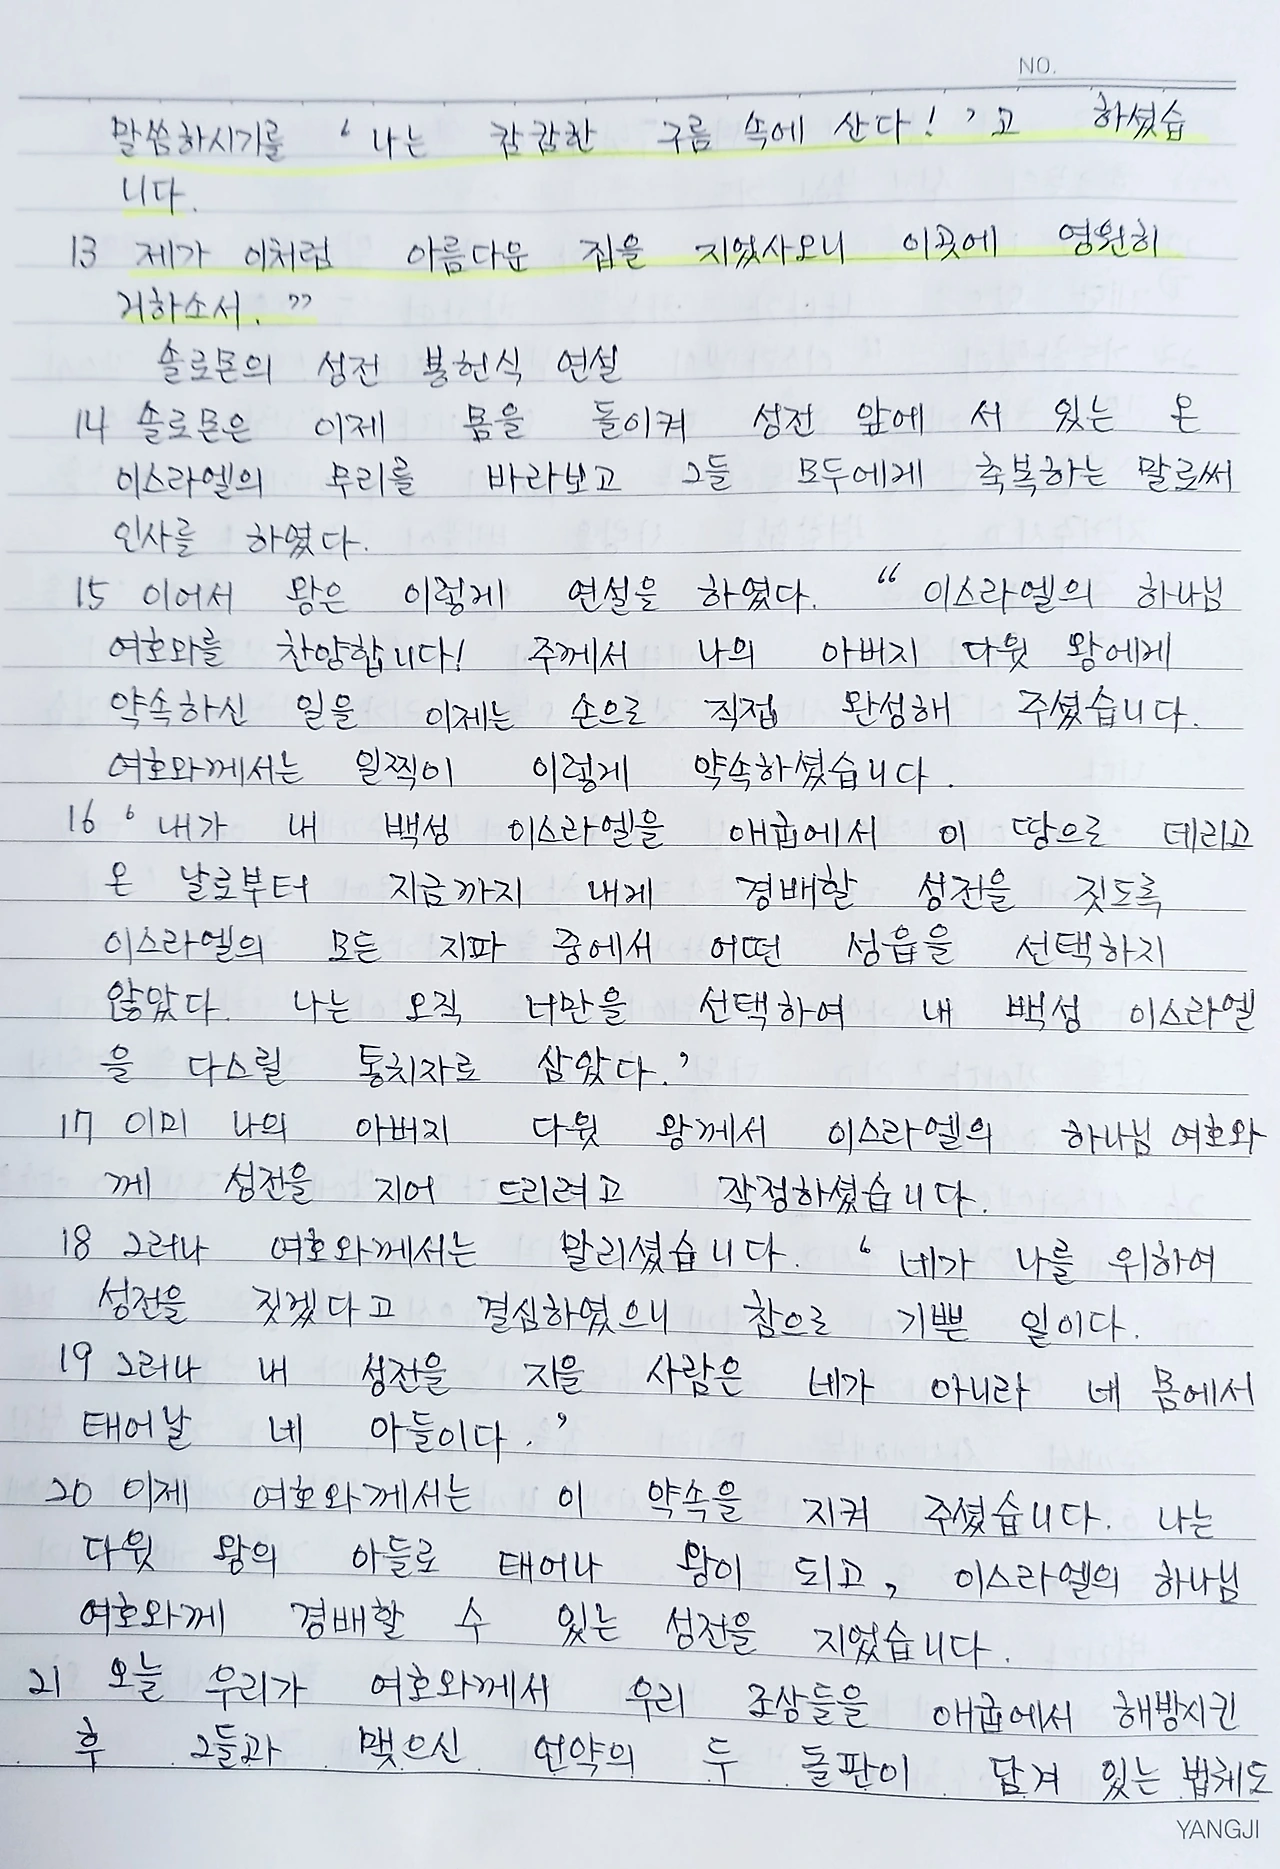 NO.
말씀하시기를 ‘나는 캄캄한 구름 속에 산다!’고 하셨습
니다.
13 제가 이처럼 아름다운 집을 지었사오니 이곳에 영원히
거하소서.”
솔로몬의 성전 봉헌식 연설
14 솔로몬은 이제 몸을 돌이켜 성전 앞에 서 있는 온
이스라엘의 무리를 바라보고 그들 모두에게 축복하는 말로써
인사를 하였다.
15 이어서 왕은 이렇게 연설을 하였다. “이스라엘의 하나님
여호와를 찬양합니다! 주께서 나의 아버지 다윗 왕에게
약속하신 일을 이제는 손으로 직접 완성해 주셨습니다.
여호와께서는 일찍이 이렇게 약속하셨습니다.
16 ‘내가 내 백성 이스라엘을 애굽에서 이 땅으로 데리고
온 날로부터 지금까지 내게 경배할 성전을 짓도록
이스라엘의 모든 지파 중에서 어떤 성읍을 선택하지
않았다. 나는 오직 너만을 선택하여 내 백성 이스라엘
을 다스릴 통치자로 삼았다.’
17 이미 나의 아버지 다윗 왕께서 이스라엘의 하나님 여호와
께 성전을 지어 드리려고 작정하셨습니다.
18 그러나 여호와께서는 말리셨습니다. ‘네가 나를 위하여
성전을 짓겠다고 결심하였으니 참으로 기쁜 일이다.
19 그러나 내 성전을 지을 사람은 네가 아니라 네 몸에서
태어날 네 아들이다.’
20 이제 여호와께서는 이 약속을 지켜 주셨습니다. 나는
다윗 왕의 아들로 태어나 왕이 되고, 이스라엘의 하나님
여호와께 경배할 수 있는 성전을 지었습니다.
21 오늘 우리가 여호와께서 우리 조상들을 애굽에서 해방시킨
후 그들과 맺으신 언약의 두 돌판이 담겨 있는 법궤도
YANGJI